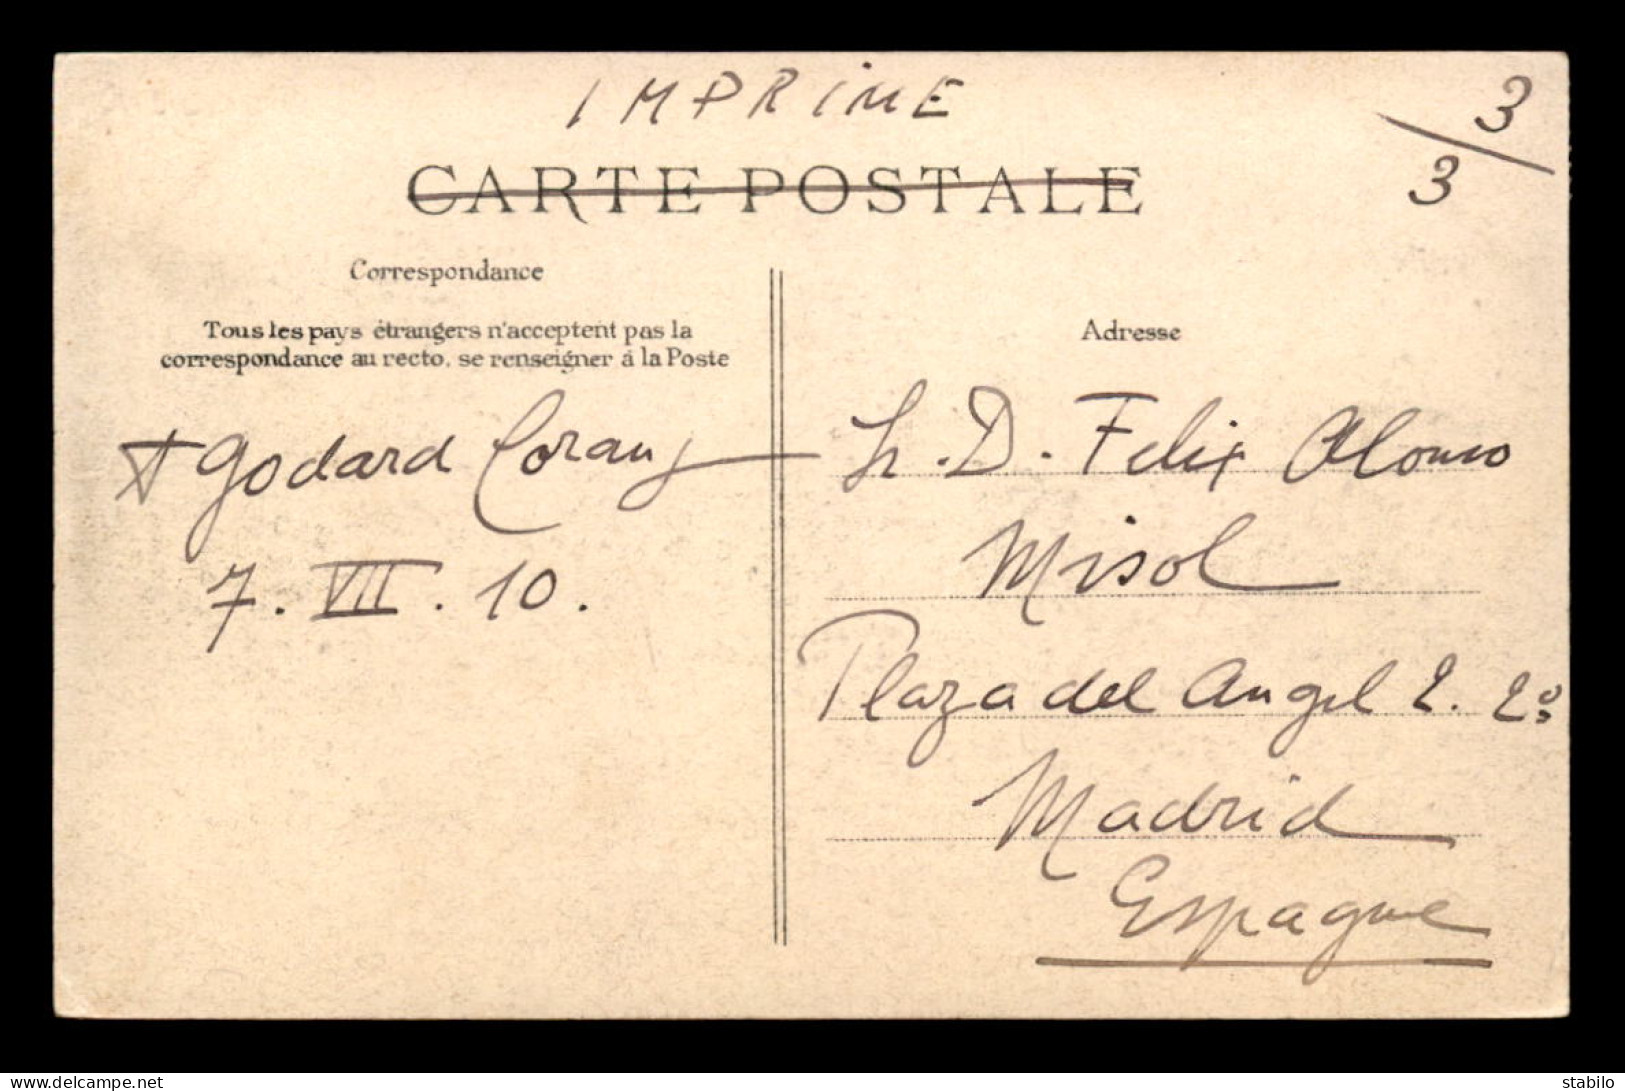 IMPRIME
3/3
CARTE POSTALE
Correspondance
Tous les pays étrangers n'acceptent pas la
correspondance au recto, se renseigner à la Poste
Godard
7. VII. 10.
Adresse
Sr. D. Felix Alonso
Misol
Plaza del Angel 2. 2º
Madrid
Espagne
delcampe.net
stabilo